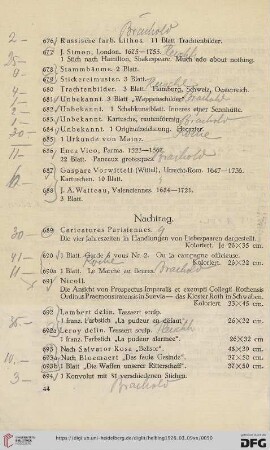 Brachold
2 - 676) Russische farb. Lithos. 11 Blatt Trachtenbilder.
25 - 677) J. Simon, London. 1675-1755.
1 Stich nach Hamilton, Shakespeare. Much ado about nothing.
678) Stammbäume. 2 Blatt.
679) Stickereimuster. 3 Blatt.
680) Trachtenbilder. 3 Blatt. Hamburg, Schweiz, Oesterreich.
681) Unbekannt. 3 Blatt "Wappenschilder" Brachold
682) Unbekannt. 1 Schabkunstblatt. Inneres einer Sennhütte.
683) Unbekannt. Kartusche, rautenförmig. Brachold
30 - 684) Unbekannt. 1 Originalzeichnung.
685) 1 Urkunde von Mainz.
11 - 686) Enea Vico, Parma. 1523-1567.
22 Blatt. Paneaux grotesques. Brachold
687) Gaspare Vorwittell (Wittel), Utrecht-Rom. 1647-1736.
Kartuschen. 10 Blatt.
688) J. A. Watteau, Valenciennes. 1684-1721.
3 Blatt.
Nachtrag.
30 - 689) Caricatures Parisiennes.
die vier Jahreszeiten in Handlungen von Liebespaaren dargestellt.
Koloriert. Je 26×35 cm.
690) 1 Blatt. Garde à vous Nr. 2. Ou la campagne officieuse.
Koloriert. 26×32 cm
11 - 690a) 1 Blatt. Le Marché aux fleurs. Brachold
691) Nicoli.
Die Ansicht von Prospectus Imperialis et exempti Collegii Rothensis
Ordinis Praemonstratensis in Suevia — das Kloster Roth in Schwaben.
Koloriert. 29×45 cm.
692) Lambert delin. Tessaert sculp.
1 franz. Farbstich "La pudeur en défaut" 26×32 cm
692a) Leroy delin. Tessaert sculp.
1 franz. Farbstich "La pudeur alarmée" 26×32 cm
693) Nach Salvator Rosa "Belisar" 48×30 cm.
10. - 693a) Nach Bloemaert "Das faule Gesinde" 37×50 cm.
693b) 1 Blatt "Die Waffen unserer Ritterzeit" 37×50 cm.
3 - 694) 1 Konvolut mit 51 verschiedenen Stichen.
Brachold
44
http://digi.ub.uni-heidelberg.de/diglit/helbing1928_03_09ws/0050
© Universitätsbibliothek Heidelberg
gefördert durch die
DFG